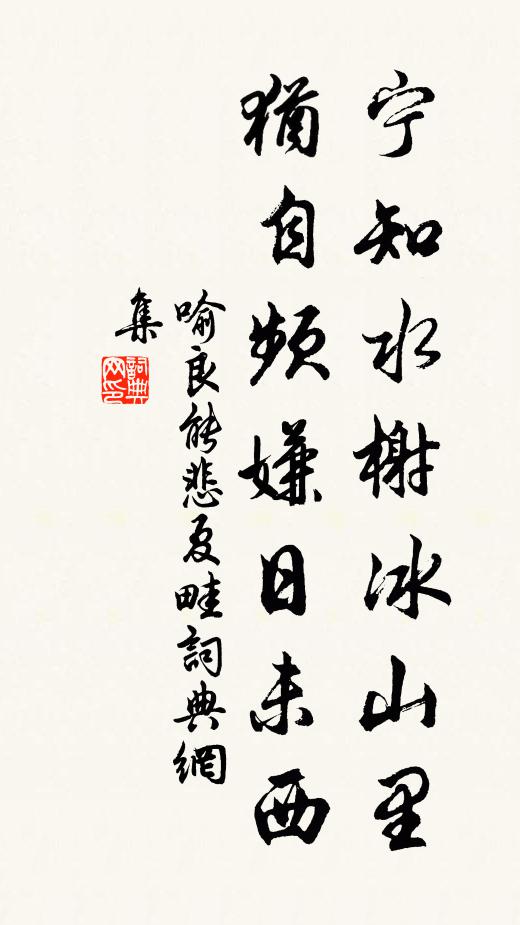 宁知水榭冰山里
犹自频嫌日未西
喻良能悲夏畦詞典網
集
詞典
网印